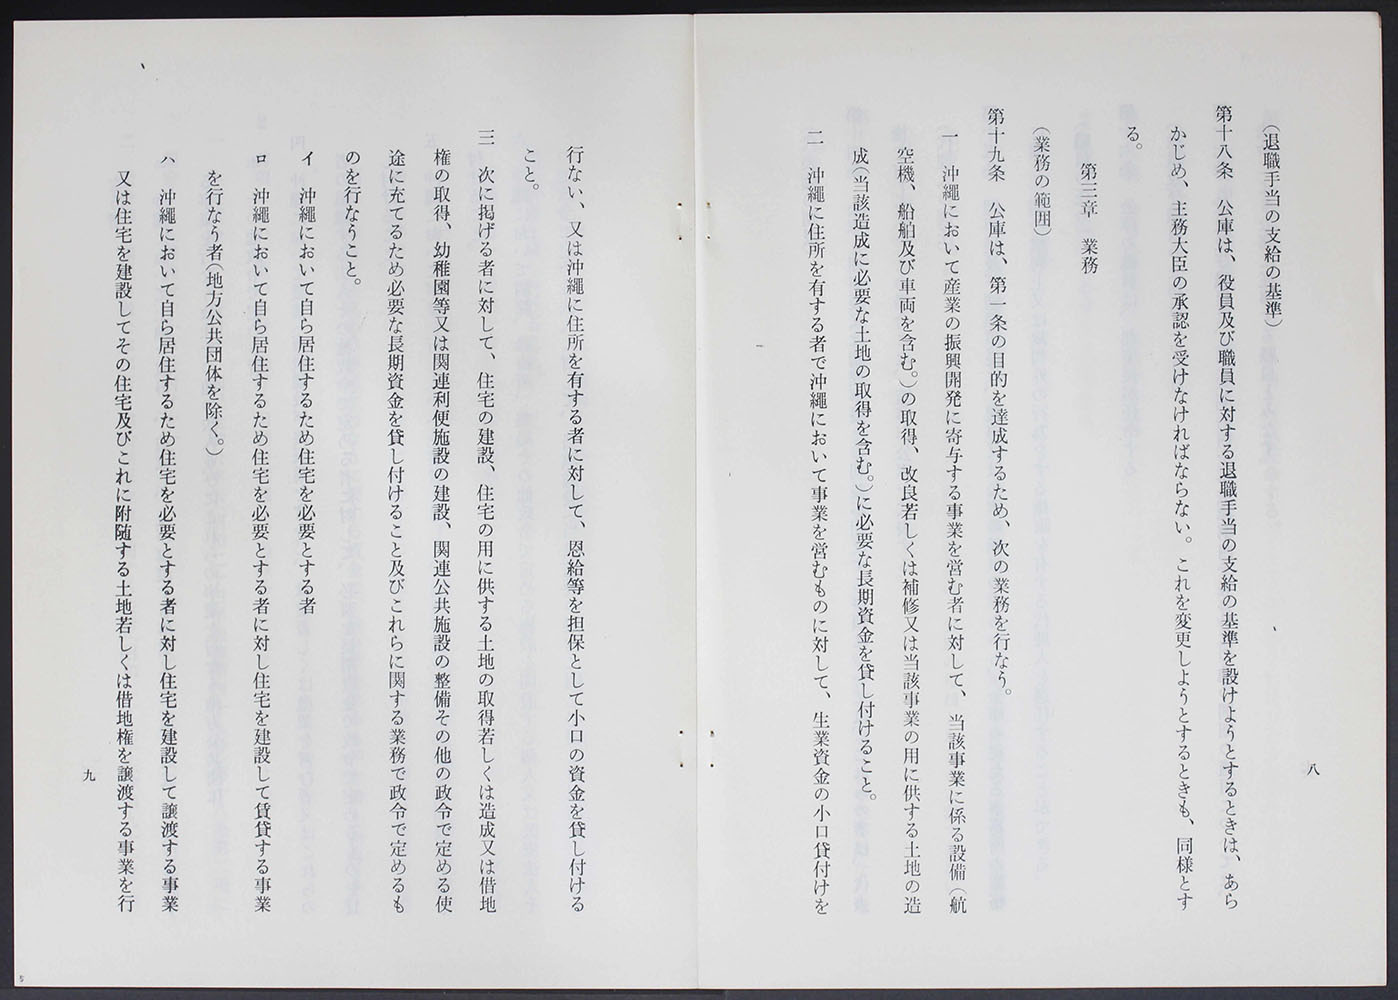 八
(退職手当の支給の基準)
第十八条　公庫は、役員及び職員に対する退職手当の支給の基準を設けようとするときは、あら
かじめ、主務大臣の承認を受けなければならない。これを変更しようとするときも、同様とす
る。
第三章　業務
(業務の範囲)
第十九条　公庫は、第一条の目的を達成するため、次の業務を行なう。
一　沖縄において産業の振興開発に寄与する事業を営む者に対して、当該事業に係る設備(航
空機、船舶及び車両を含む。)の取得、改良若しくは補修又は当該事業の用に供する土地の造
成(当該造成に必要な土地の取得を含む。)に必要な長期資金を貸し付けること。
二　沖縄に住所を有する者で沖縄において事業を営むものに対して、生業資金の小口貸付けを
行ない、又は沖縄に住所を有する者に対して、恩給等を担保として小口の資金を貸し付ける
こと。
三　次に掲げる者に対して、住宅の建設、住宅の用に供する土地の取得若しくは造成又は借地
権の取得、幼稚園等又は関連利便施設の建設、関連公共施設の整備その他の政令で定める使
途に充てるため必要な長期資金を貸し付けること及びこれらに関する業務で政令で定めるも
のを行なうこと。
イ　沖縄において自ら居住するため住宅を必要とする者
ロ　沖縄において自ら居住するため住宅を必要とする者に対し住宅を建設して賃貸する事業
を行なう者(地方公共団体を除く。)
ハ　沖縄において自ら居住するため住宅を必要とする者に対し住宅を建設して譲渡する事業
又は住宅を建設してその住宅及びこれに附随する土地若しくは借地権を譲渡する事業を行
九
5